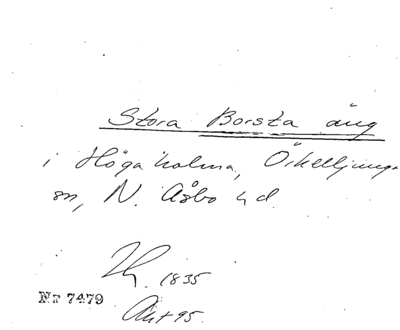 Stora Borsta äng
i Högaholma, Örkelljunga
sn, N. Åsbo hd.
1835
Nr 7479
Akt 95.